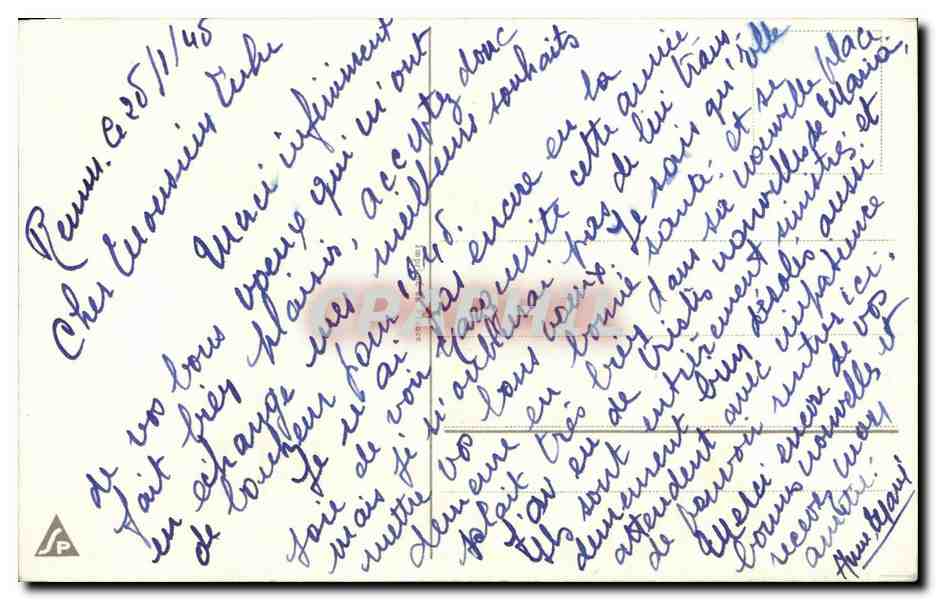 Rennes, le 25/1/45
Cher Monsieur
Merci infiniment
de vos bons voeux qui m'ont
fait très plaisir, acceptez donc
en échange mes meilleurs souhaits
de bonheur pour 1945.
Je n'ai pas encore eu la
joie de voir Marguerite cette année
mais je n'oublierai pas de lui trans-
mettre vos bons voeux. Je sais qu'elle
demeure en bonne santé et se
plait très bien dans sa nouvelle place
J'ai eu de tristes nouvelles de Maria,
Ils sont entièrement sinistrés et
dument bien désolés aussi
attendent avec impatience
de pouvoir rentrer ici.
Merci encore de vos
bonnes nouvelles et
recevez mes
amitiés
Anne Marie
CPAPHIL
SP